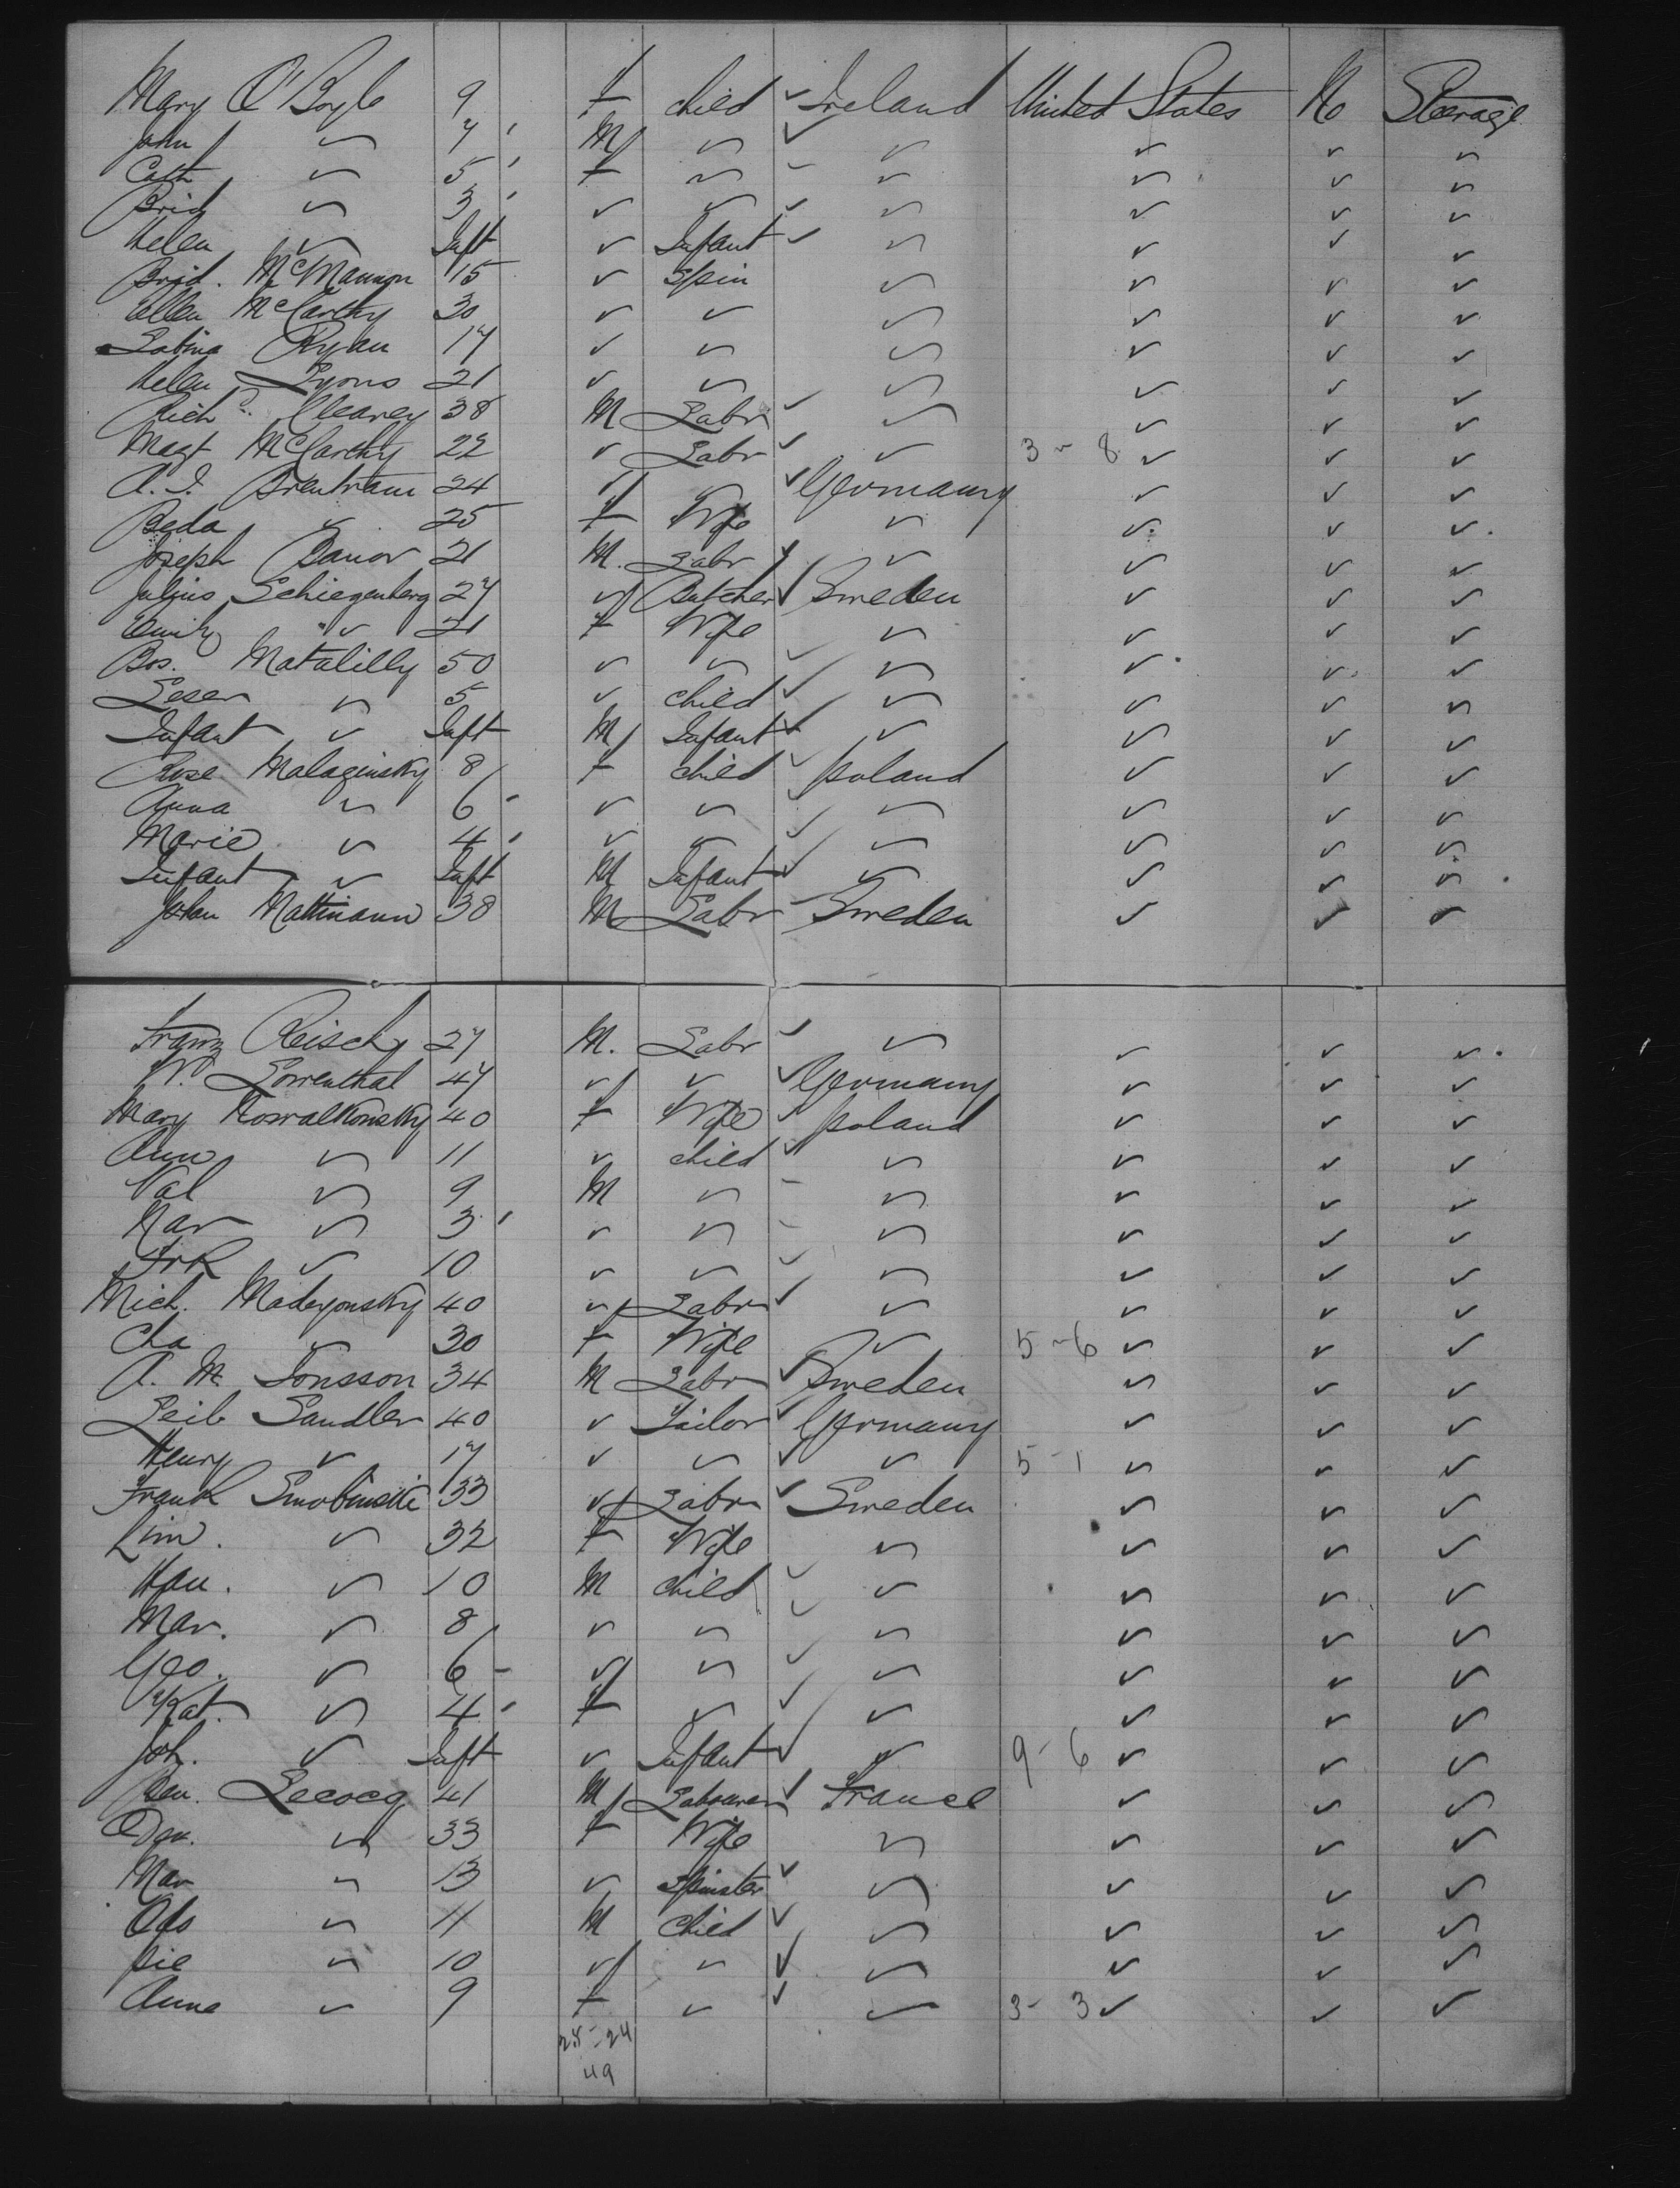 Mary O'Boyle 9 f child ✓ Ireland United States No Steerage
John ✓ 7 ' M ✓ ✓ ✓ ✓ ✓ ✓
Cath ✓ 5 ' f ✓ - ✓ ✓ ✓ ✓
Brid ✓ 3 ' ✓ ✓ ✓ ✓ ✓ ✓ ✓
Helen ✓ Inft ✓ Infant ✓ ✓ ✓ ✓ ✓
Brid. McMannon 15 ✓ Spin ✓ ✓ ✓ ✓
Ellen McCarthy 30 ✓ ✓ ✓ ✓ ✓ ✓
Sabina Ryan 17 ✓ ✓ ✓ ✓ ✓ ✓
Helen Lyons 21 ✓ ✓ ✓ ✓ ✓ ✓
Richd. Clearey 38 M Labr ✓ ✓ ✓ ✓ ✓
Magt McCarthy 22 ✓ Labr ✓ ✓ 3 - 8 ✓ ✓ ✓
A. I. Brentram 24 ✓ ✓ ✓ Germany ✓ ✓ ✓
Beda ✓ 25 f Wife ✓ ✓ ✓ ✓
Joseph Banor 21 M. Labr ✓ ✓ ✓ ✓ ✓
Julius Schiegenberg 27 ✓ Butcher ✓ Sweden ✓ ✓ ✓
Emily " ✓ 21 f Wife ✓ ✓ ✓ ✓
Bos. Matalilly 50 ✓ ✓ ✓ ✓ ✓ ✓ ✓
Leser ✓ 5 ✓ child ✓ ✓ ✓ ✓ ✓
Infant ✓ Inft M Infant ✓ ✓ ✓ ✓ ✓
Rose Malazinsky 8 f child ✓ Poland ✓ ✓ ✓
Anna ✓ 6 - ✓ ✓ ✓ ✓ ✓ ✓ ✓
Marie ✓ 4 ' ✓ ✓ ✓ ✓ ✓ ✓ ✓
Infant ✓ Inft M Infant ✓ ✓ ✓ ✓ ✓
Johan Mattmann 38 M Labr - Sweden ✓ ✓ ✓
Franz Reisch 27 M. Labr ✓ ✓ ✓ ✓ ✓
W. Lowenthal 47 ✓ ✓ ✓ Germany ✓ ✓ ✓
Mary Kowalkowsky 40 f Wife ✓ Poland ✓ ✓ ✓
Ann ✓ 11 ✓ child ✓ ✓ ✓ ✓ ✓
Val ✓ 9 M ✓ - ✓ ✓ ✓ ✓
Mar ✓ 3 ' ✓ ✓ - ✓ ✓ ✓ ✓
Frk ✓ 10 ✓ ✓ ✓ ✓ ✓ ✓ ✓
Mich. Madeyonsky 40 ✓ Labr ✓ ✓ ✓ ✓ ✓
Cha ✓ 30 f Wife ✓ 5 - 6 ✓ ✓ ✓
A. M. Jonsson 34 M Labr ✓ Sweden ✓ ✓ ✓
Leib Sandler 40 ✓ Tailor ✓ Germany ✓ ✓ ✓
Henry ✓ 17 ✓ ✓ ✓ ✓ 5 - 1 ✓ ✓ ✓
Frank Smobinski 33 ✓ Labr ✓ Sweden ✓ ✓ ✓
Lim. ✓ 32 f Wife ✓ ✓ ✓ ✓
Han. ✓ 10 M child ✓ ✓ ✓ ✓ ✓
Mar. ✓ 8 ✓ ✓ ✓ ✓ ✓ ✓ ✓
Geo. ✓ 6 - ✓ ✓ ✓ ✓ ✓ ✓ ✓
Kat. ✓ 4 ' f ✓ ✓ ✓ ✓ ✓ ✓
Joh. ✓ Inft ✓ Infant ✓ ✓ 9 - 6 ✓ ✓ ✓
Lecocq 41 M Labourer ✓ France ✓ ✓ ✓
✓ 33 f Wife ✓ ✓ ✓ ✓
Mar ✓ 13 ✓ Spinster ✓ ✓ ✓ ✓ ✓
✓ 11 M child ✓ ✓ ✓ ✓ ✓
✓ 10 ✓ ✓ ✓ ✓ ✓ ✓ ✓
Anna ✓ 9 f ✓ ✓ ✓ 3 - 3 ✓ ✓ ✓
25 - 24
49